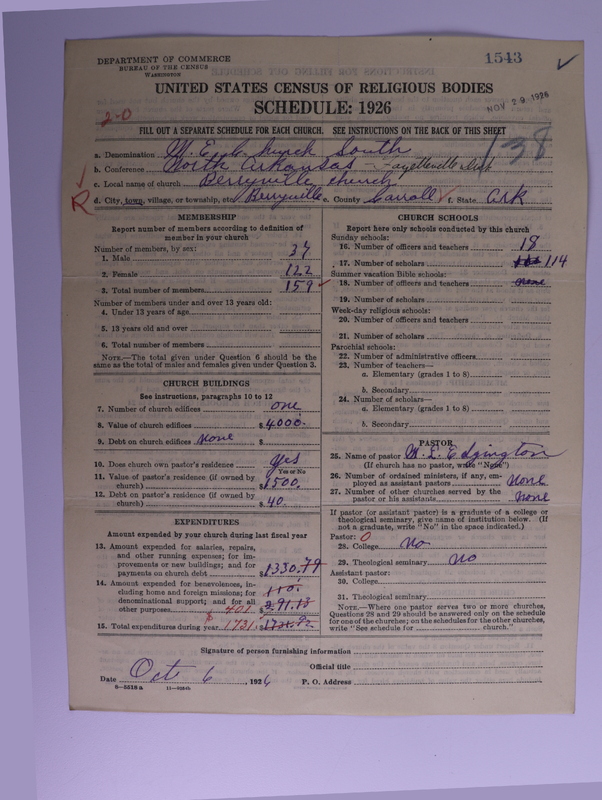 DEPARTMENT OF COMMERCE
BUREAU OF THE CENSUS
WASHINGTON
1543
UNITED STATES CENSUS OF RELIGIOUS BODIES
SCHEDULE: 1926
NOV 29 1926
2-0
FILL OUT A SEPARATE SCHEDULE FOR EACH CHURCH. SEE INSTRUCTIONS ON THE BACK OF THIS SHEET
138
a. Denomination M. E. Church South
b. Conference North Arkansas - Fayetteville Dist
c. Local name of church Berryville church
R d. City, town, village, or township, etc. Berryville e. County Carroll f. State Ark
MEMBERSHIP
Report number of members according to definition of
member in your church
Number of members, by sex:
1. Male 37
2. Female 122
3. Total number of members 159
Number of members under and over 13 years old:
4. Under 13 years of age
5. 13 years old and over
6. Total number of members
NOTE.—The total given under Question 6 should be the
same as the total of males and females given under Question 3.
CHURCH BUILDINGS
See instructions, paragraphs 10 to 12
7. Number of church edifices one
8. Value of church edifices $ 4000.
9. Debt on church edifices None $
10. Does church own pastor's residence yes
Yes or No
11. Value of pastor's residence (if owned by
church) $ 1500.
12. Debt on pastor's residence (if owned by
church) $ 40.
EXPENDITURES
Amount expended by your church during last fiscal year
13. Amount expended for salaries, repairs,
and other running expenses; for im-
provements or new buildings; and for
payments on church debt $ 1330.79
14. Amount expended for benevolences, in-
cluding home and foreign missions; for 110.
denominational support; and for all
other purposes $ 401 291.13
15. Total expenditures during year 1731 $ 1731.92
CHURCH SCHOOLS
Report here only schools conducted by this church
Sunday schools:
16. Number of officers and teachers 18
17. Number of scholars 114
Summer vacation Bible schools:
18. Number of officers and teachers none
19. Number of scholars
Week-day religious schools:
20. Number of officers and teachers
21. Number of scholars
Parochial schools:
22. Number of administrative officers
23. Number of teachers—
a. Elementary (grades 1 to 8)
b. Secondary
24. Number of scholars—
a. Elementary (grades 1 to 8)
b. Secondary
PASTOR
25. Name of pastor M. L. Edgington
(If church has no pastor, write "None")
26. Number of ordained ministers, if any, em-
ployed as assistant pastors None
27. Number of other churches served by the
pastor or his assistants none
If pastor (or assistant pastor) is a graduate of a college or
theological seminary, give name of institution below. (If
not a graduate, write "No" in the space indicated.)
Pastor: 0
28. College No
29. Theological seminary No
Assistant pastor:
30. College
31. Theological seminary
NOTE.—Where one pastor serves two or more churches,
Questions 28 and 29 should be answered only on the schedule
for one of the churches; on the schedules for the other churches,
write "See schedule for church."
Signature of person furnishing information
Official title
Date Oct 6, 1926 P. O. Address
8—5518a 11—9354b